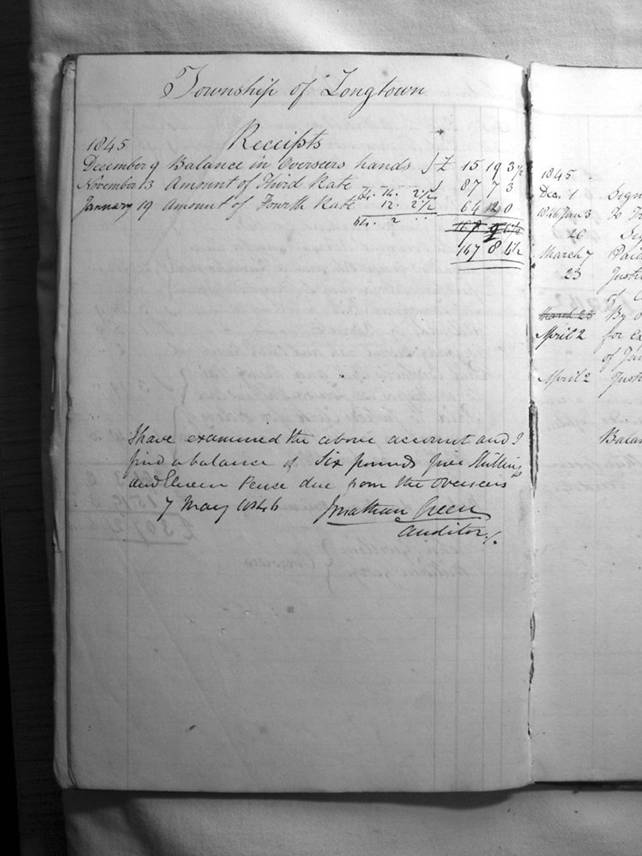 Township of Longtown
1845 Receipts
December 9 Balance in Overseers hands } £ 15 19 3½
November 13 Amount of Third Rate 87 7 3
64. 14. 2½
January 19 Amount of Fourth Rate 64 0
12. 2½
64. 2 "
167 8 6½
I have examined the above account and I
find a balance of Six pounds five Shillings
and Eleven Pence due from the Overseers
7 May 1846 Jonathan Green
Auditor
1845
Dec. 1
1846 Jan 3 To
26
March 7
23
March 23 By
April 2 for
of
April 2